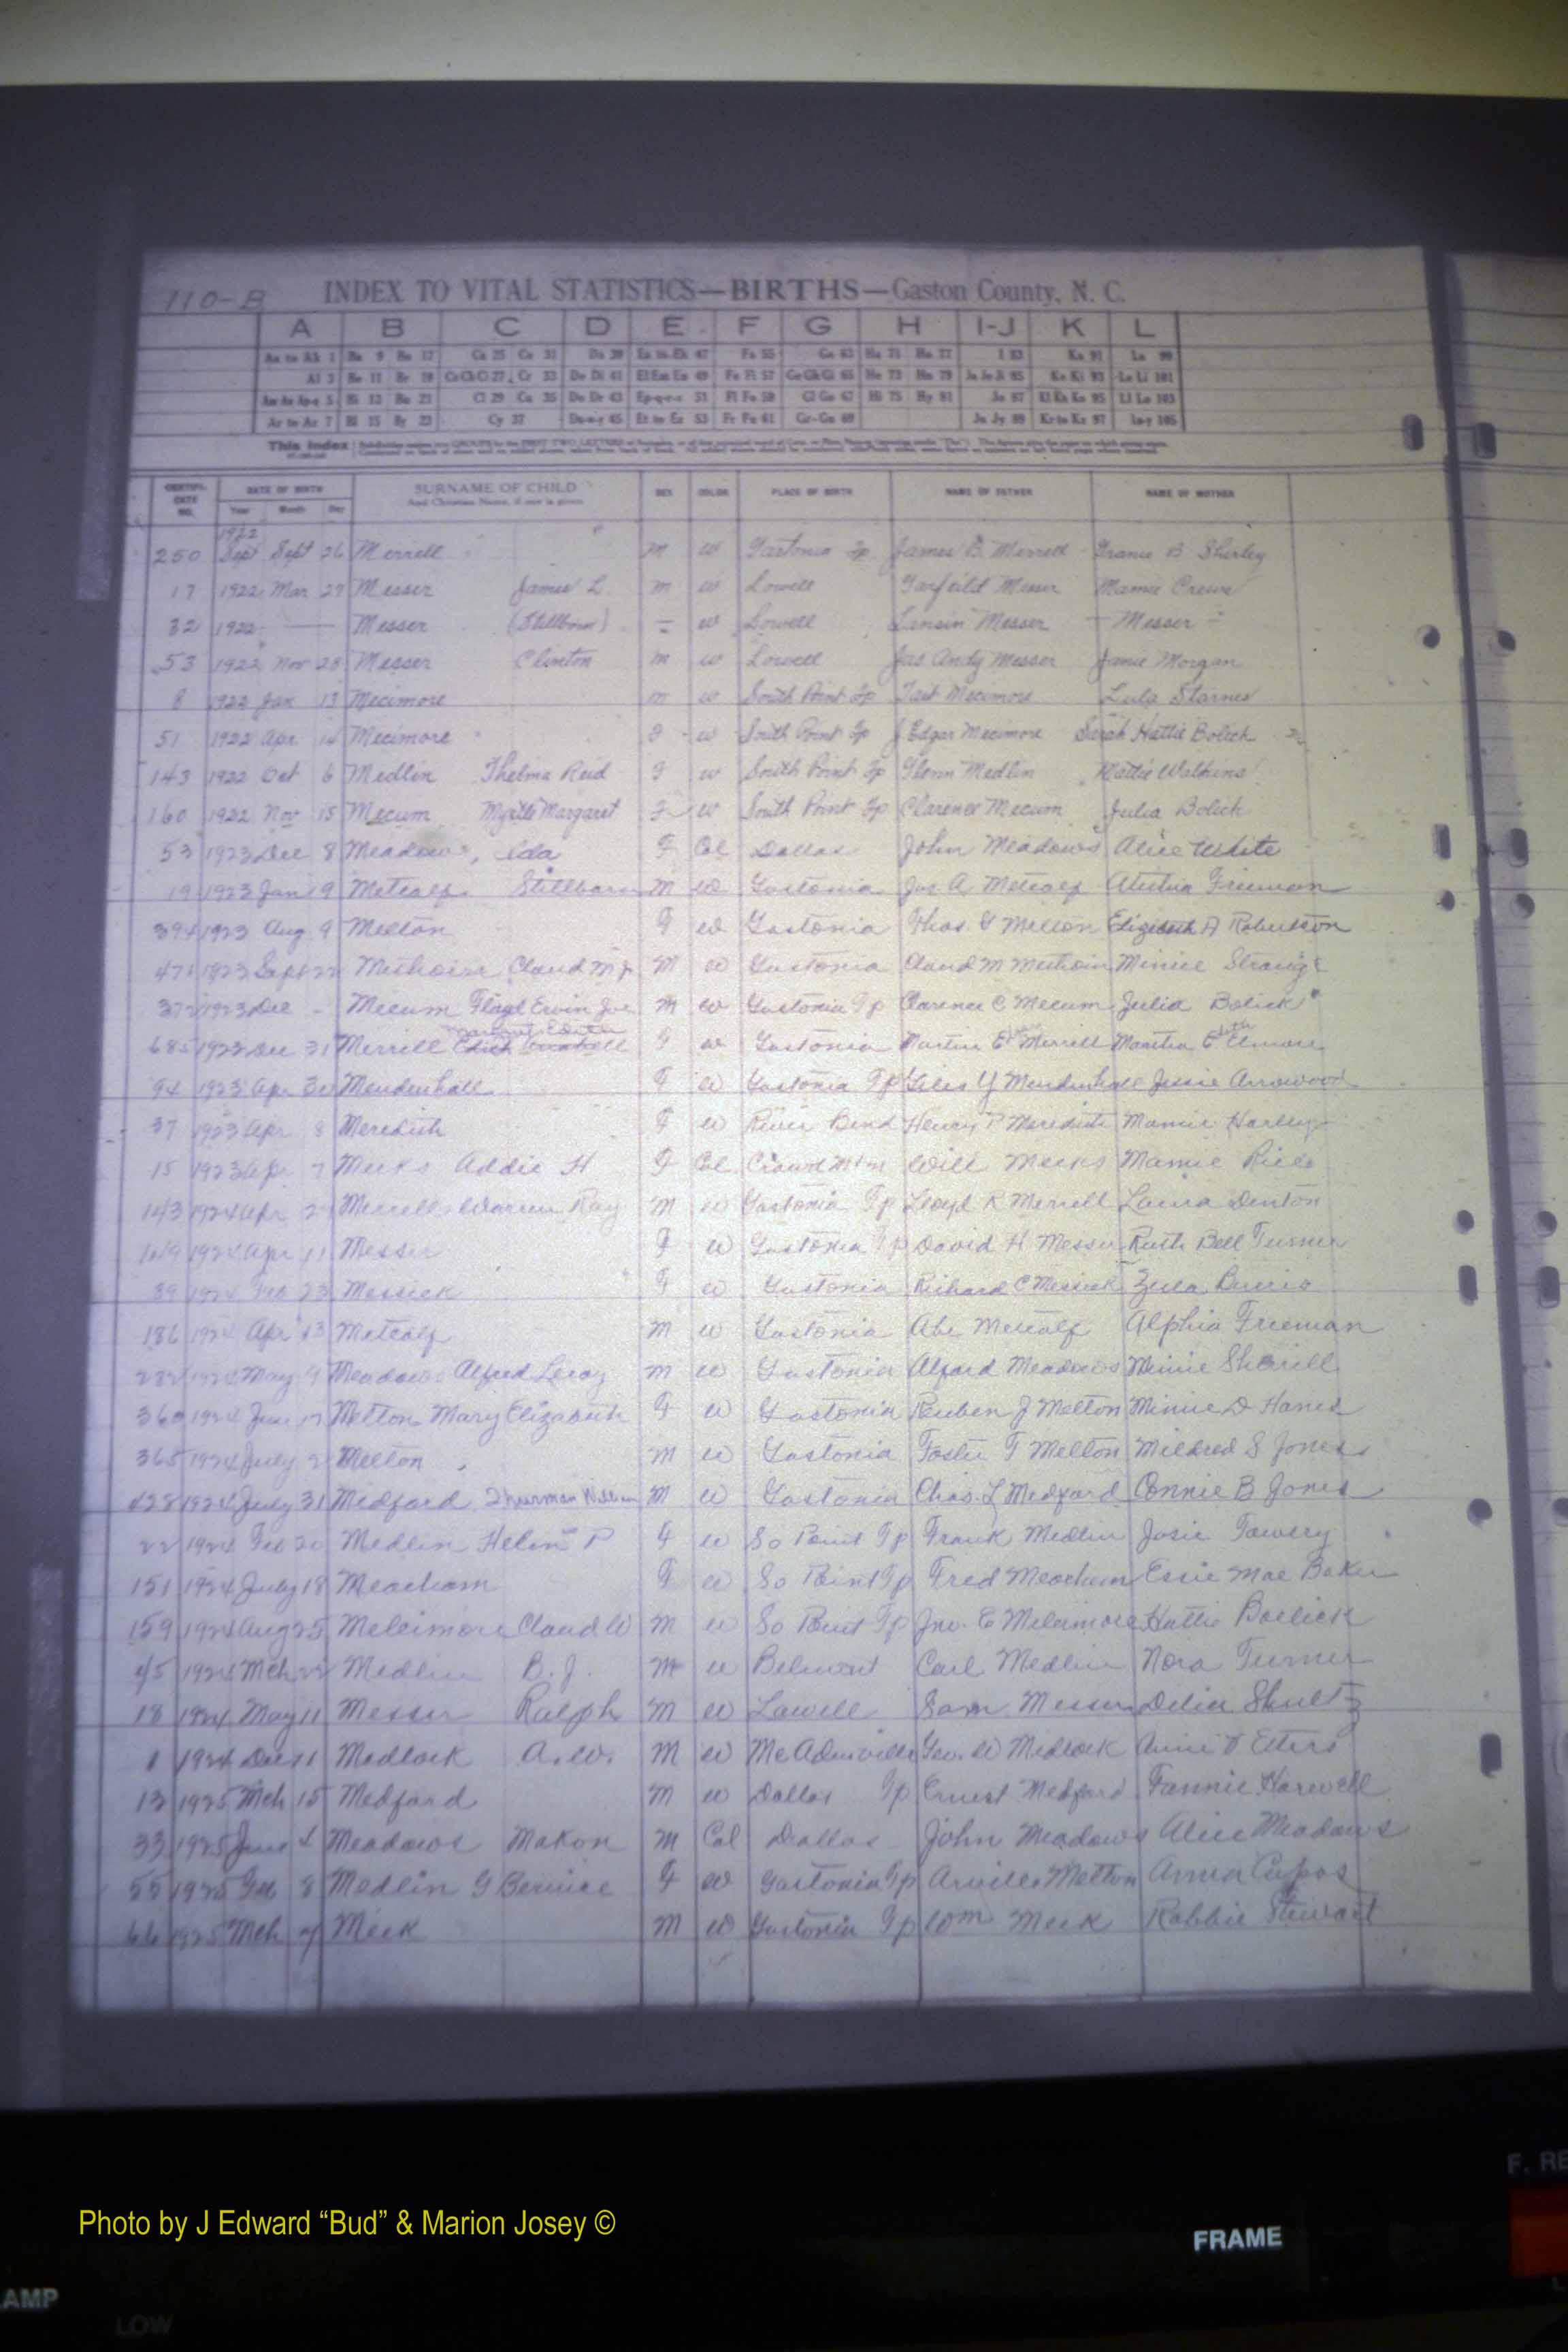 110-B INDEX TO VITAL STATISTICS—BIRTHS—Gaston County, N. C.
A B C D E F G H I-J K L
Aa to Ak 1 Ba 9 Bo 17 Ca 25 Co 31 Da 39 Ea to Ek 47 Fa 55 Ga 63 Ha 71 Ho 77 I 83 Ka 91 La 99
Al 3 Be 11 Br 19 Ce Ch Ci 27 Cr 33 De Di 41 El Em En 49 Fe Fi 57 Ge Gh Gi 65 He 73 Hu 79 Ja Je Ji 85 Ke Ki 93 Le Li 101
5 Bi 13 Bu 21 Cl 29 Cu 35 Do Dr 43 51 Fl Fo 59 Gl Go 67 Hi 75 Hy 81 Jo 87 Kl Kn Ko 95 Ll Lo 103
Ar to Az 7 Bl 15 By 23 Cy 37 45 Et to Ez 53 Fr Fu 61 Gr-Gu 69 Ju Jy 89 Kr to Kz 97 Lu-y 105
This Index
CERTIFI-CATE NO. DATE OF BIRTH Year Month Day SURNAME OF CHILD And Christian Name, if one is given SEX COLOR PLACE OF BIRTH NAME OF FATHER NAME OF MOTHER
1922
250 Sept Sept 26 Merrell m w Gastonia Tp James B. Merrell B Shirley
17 1922 Mar 27 Messer James L. m w Lowell Garfeild Messer Mamie
32 1922 — Messer (Stillborn) – w Lowell Lansin Messer — Messer –
53 1922 Nov 28 Messer Clinton m w Lowell Jas. Andy Messer Janie Morgan
8 1922 Jan 13 Mecimore m w South Point Tp Mecimore Lula Starnes
51 1922 Apr 14 Mecimore F w South Point Tp J Edgar Mecimore Sarah Hattie Bolick
143 1922 Oct 6 Medlin Thelma Reid F w South Point Tp Glenn Medlin Hattie Watkins
160 1922 Nov 15 Mecum Myrtle Margaret F w South Point Tp Clarence Mecum Julia Bolick
53 1923 Dec 8 Meadows, Ida F Col Dallas John Meadows Alice White
19 1923 Jan 9 Metcalf Stillborn M w Gastonia Jas. A Metcalf Freeman
394 1923 Aug 9 Melton F w Gastonia Melton Elizabeth A Robertson
1923 Sept Claud M Jr M w Gastonia Claud M Minnie Strange
372 1923 Dec - Mecum Floyd Ervin Joe M w Gastonia Tp Clarence C Mecum Julia Bolick
Margaret Edith
685 1923 Dec 31 Merrill F w Gastonia Martin E Merrill Martha E Elmore
94 1923 Apr 30 Mendenhall F w Gastonia Tp Giles Y Mendenhall Jessie Arrowood
37 1923 Apr 8 Meredith F w River Bend Henry P Meredith Mamie Harley
15 1923 Ap. 7 Meeks Addie H F Col Crowd Mtn Will Meeks Mamie
143 1924 Apr Merrell Warren Ray M w Gastonia Tp Lloyd R Merrell Laura Denton
1924 Apr 11 Messer F w Gastonia Tp David H Messer Ruth Bell Turner
39 1924 Feb 23 Messick F w Gastonia Richard C Messick Zula
186 1924 Apr 13 Metcalf M w Gastonia Abe Metcalf Alphia Freeman
1924 May 9 Meadows Alfred Leroy M w Gastonia Alford Meadows Minnie Sherrill
360 1924 June 17 Melton Mary Elizabeth F w Gastonia Reuben J Melton Minnie D Hanes
365 1924 July 2 Melton M w Gastonia Foster T Melton Mildred S Jones
428 1924 July 31 Medford Thurman William M w Gastonia Chas. L Medford Connie B Jones
22 1924 Feb 20 Medlin Helen P F w So Point Tp Frank Medlin Josie Towery
151 1924 July 18 Meacham F w So Point Tp Fred Meacham Essie Mae Baker
159 1924 Aug 25 Melcimore Claud W M w So Point Tp Jno. E Melcimore Hattie Boelick
45 1924 Mch 22 Medlin B. J. M w Belmont Carl Medlin Nora Turner
18 1924 May 11 Messer Ralph M w Lowell Sam Messer Delia Shultz
1 1924 Dec 11 Medlock A. W. M w McAdenville Geo. W Medlock Annie D Etters
12 1925 Mch 15 Medford M w Dallas Tp Ernest Medford Fannie Harwell
33 1925 June 4 Meadows Makon M Col Dallas John Meadows Alice Meadows
55 1925 Feb 8 Medlin G Bernice F w Gastonia Tp Melton Anna
66 1925 Mch 7 Meek M w Gastonia Tp Wm Meek Robbie Stewart
Photo by J Edward “Bud” & Marion Josey ©
FRAME
F. RE
AMP
LOW